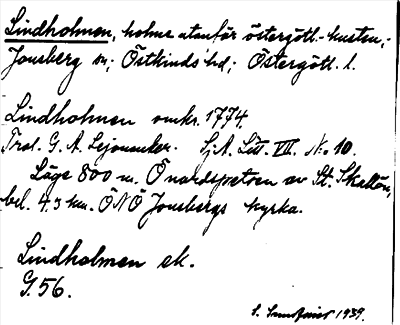 Lindholmen, holme utanför östergötl.-kusten,-
Jonsberg sn; Östkinds hd; Östergötl. l.
Lindholmen omkr. 1774.
Trol. G. A. Lejonancker. Sj.A. Litt. VII. No. 10.
Läge 800 m. Ö nordspetsen av St. Skällön,
bel. 4.3 km. ÖNÖ Jonsbergs kyrka.
Lindholmen ek.
G.56.
S. 1939.